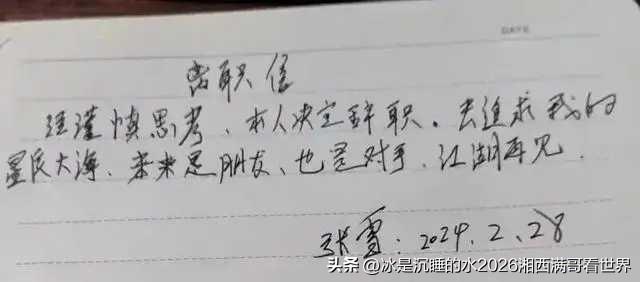 DATE
离职信
经谨慎思考、本人决定辞职。去追求我的
星辰大海、未来是朋友、也是对手、江湖再见.
张雪:2024.2.28
头条 @冰是沉睡的水2026湘西满哥看世界